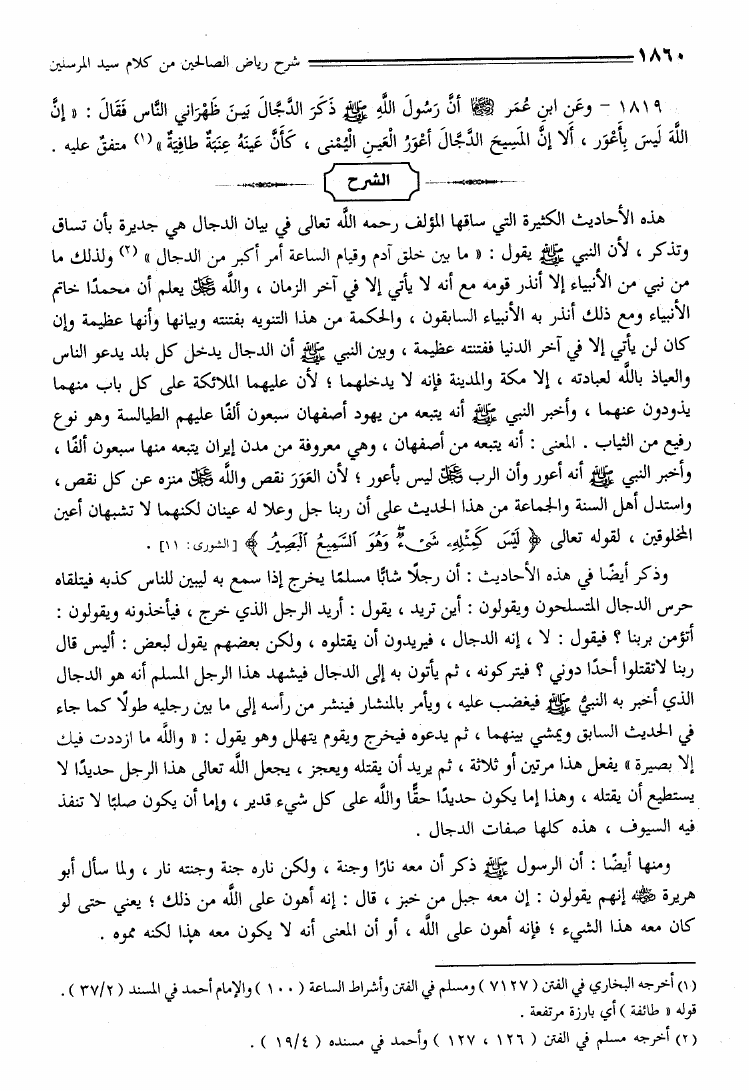 ١٨٦٠ شرح رياض الصالحين من كلام سيد المرسلين
١٨١٩ - وعَن ابنِ عُمَر رضي الله عنهما أنَّ رَسُولَ اللَّهِ ﷺ ذَكَرَ الدَّجَّالَ بَينَ ظَهْرَاني النَّاس فَقَالَ : « إنَّ
اللَّهَ لَيسَ بِأَعْوَر ، أَلا إنَّ المَسِيحَ الدَّجَّالَ أعْوَرُ العَينِ الْيُمْنى ، كَأَنَّ عَينَهُ عِنَبَةٌ طافِيَةٌ » (١) متفقٌ عليه .
الشرح
هذه الأحاديث الكثيرة التي ساقها المؤلف رحمه اللَّه تعالى في بيان الدجال هي جديرة بأن تساق
وتذكر ، لأن النبي ﷺ يقول : « ما بين خلق آدم وقيام الساعة أمر أكبر من الدجال » (٢) ولذلك ما
من نبي من الأنبياء إلا أنذر قومه مع أنه لا يأتي إلا في آخر الزمان ، واللَّه ﷻ يعلم أن محمدًا خاتم
الأنبياء ومع ذلك أنذر به الأنبياء السابقون ، والحكمة من هذا التنويه بفتنته وبيانها وأنها عظيمة وإن
كان لن يأتي إلا في آخر الدنيا ففتنته عظيمة ، وبين النبي ﷺ أن الدجال يدخل كل بلد يدعو الناس
والعياذ باللَّه لعبادته ، إلا مكة والمدينة فإنه لا يدخلهما ؛ لأن عليهما الملائكة على كل باب منهما
يذودون عنهما ، وأخبر النبي ﷺ أنه يتبعه من يهود أصفهان سبعون ألفًا عليهم الطيالسة وهو نوع
رفيع من الثياب . المعنى : أنه يتبعه من أصفهان ، وهي معروفة من مدن إيران يتبعه منها سبعون ألفًا ،
وأخبر النبي ﷺ أنه أعور وأن الرب ﷻ ليس بأعور ؛ لأن العَوَرَ نقص واللَّه ﷻ منزه عن كل نقص ،
واستدل أهل السنة والجماعة من هذا الحديث على أن ربنا جل وعلا له عينان لكنهما لا تشبهان أعين
المخلوقين ، لقوله تعالى ﴿ لَيْسَ كَمِثْلِهِۦ شَىْءٌ ۖ وَهُوَ ٱلسَّمِيعُ ٱلْبَصِيرُ ﴾ [ الشورى : ١١ ] .
وذكر أيضًا في هذه الأحاديث : أن رجلًا شابًّا مسلمًا يخرج إذا سمع به ليبين للناس كذبه فيتلقاه
حرس الدجال المتسلحون ويقولون : أين تريد ، يقول : أريد الرجل الذي خرج ، فيأخذونه ويقولون :
أتؤمن بربنا ؟ فيقول : لا ، إنه الدجال ، فيريدون أن يقتلوه ، ولكن بعضهم يقول لبعض : أليس قال
ربنا لاتقتلوا أحدًا دوني ؟ فيتركونه ، ثم يأتون به إلى الدجال فيشهد هذا الرجل المسلم أنه هو الدجال
الذي أخبر به النبيُّ ﷺ فيغضب عليه ، ويأمر بالمنشار فينشر من رأسه إلى ما بين رجليه طولًا كما جاء
في الحديث السابق ويمشي بينهما ، ثم يدعوه فيخرج ويقوم يتهلل وهو يقول : « واللَّه ما ازددت فيك
إلا بصيرة » يفعل هذا مرتين أو ثلاثة ، ثم يريد أن يقتله ويعجز ، يجعل اللَّه تعالى هذا الرجل حديدًا لا
يستطيع أن يقتله ، وهذا إما يكون حديدًا حقًّا واللَّه على كل شيء قدير ، وإما أن يكون صلبًا لا تنفذ
فيه السيوف ، هذه كلها صفات الدجال .
ومنها أيضًا : أن الرسول ﷺ ذكر أن معه نارًا وجنة ، ولكن ناره جنة وجنته نار ، ولما سأل أبو
هريرة رضي الله عنه إنهم يقولون : إن معه جبل من خبز ، قال : إنه أهون على اللَّه من ذلك ؛ يعني حتى لو
كان معه هذا الشيء ؛ فإنه أهون على اللَّه ، أو أن المعنى أنه لا يكون معه هذا لكنه مموه .
(١) أخرجه البخاري في الفتن ( ٧١٢٧ ) ومسلم في الفتن وأشراط الساعة ( ١٠٠ ) والإمام أحمد في المسند ( ٣٧/٢ ) .
قوله « طائفة ) أي بارزة مرتفعة .
(٢) أخرجه مسلم في الفتن ( ١٢٦ ، ١٢٧ ) وأحمد في مسنده ( ١٩/٤ ) .